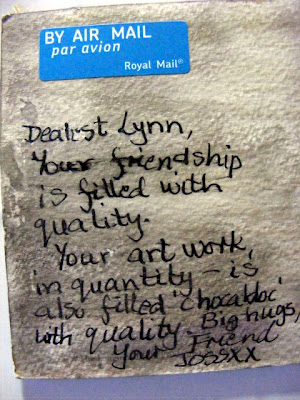 BY AIR MAIL
par avion
Royal Mail®
Dearest Lynn,
Your friendship
is filled with
quality.
Your art work,
in quantity - is
also filled 'chocabloc'
with quality. Big hugs,
Your Friend
JOSSXX